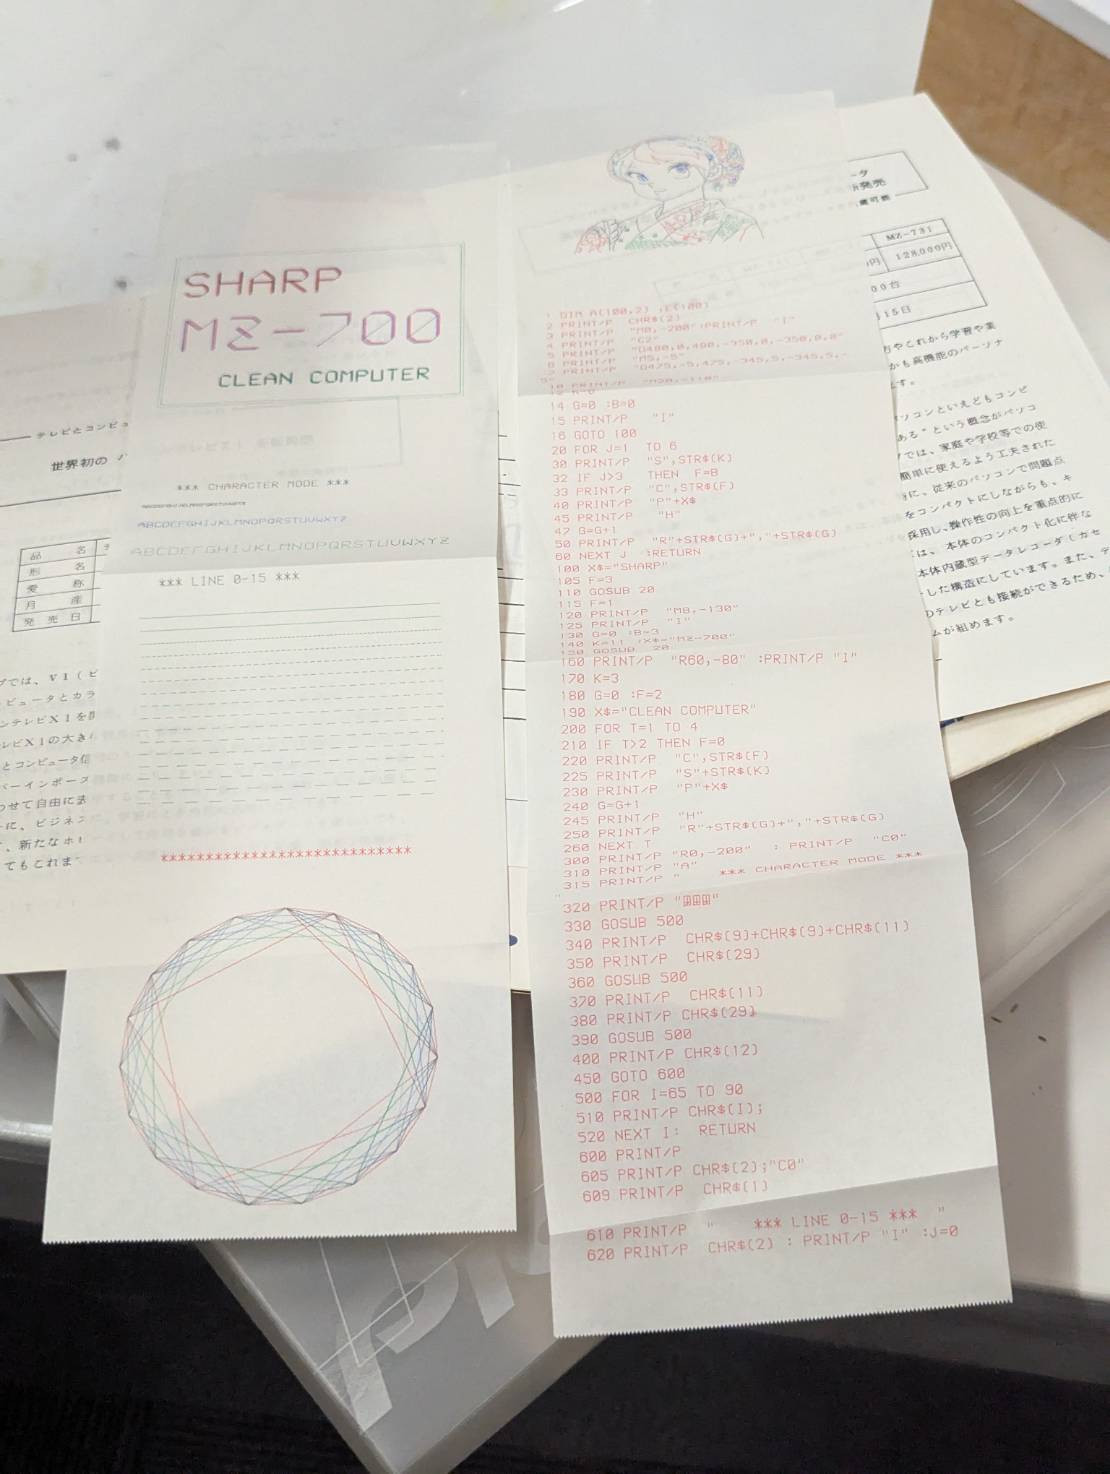 SHARP
MZ-700
CLEAN COMPUTER
*** CHARACTER MODE ***
ABCDEFGHIJKLMNOPQRSTUVWXYZ
ABCDEFGHIJKLMNOPQRSTUVWXYZ
ABCDEFGHIJKLMNOPQRSTUVWXYZ
*** LINE 0-15 ***
****************************
1 DIM A(100,2) ,E(100)
2 PRINT/P CHR$(2)
3 PRINT/P "M0,-200":PRINT/P "I"
4 PRINT/P "C2"
5 PRINT/P "D480,0,480,-350,0,-350,0,0"
6 PRINT/P "M5,-5"
7 PRINT/P "D475,-5,475,-345,5,-345,5,-
5"
10 PRINT/P
14 G=0 :B=0
15 PRINT/P "I"
16 GOTO 100
20 FOR J=1 TO 6
30 PRINT/P "S",STR$(K)
32 IF J>3 THEN F=B
33 PRINT/P "C",STR$(F)
40 PRINT/P "P"+X$
45 PRINT/P "H"
47 G=G+1
50 PRINT/P "R"+STR$(G)+","+STR$(G)
60 NEXT J :RETURN
100 X$="SHARP"
105 F=3
110 GOSUB 20
115 F=1
120 PRINT/P "M8,-130"
125 PRINT/P "I"
130 G=0 :B=3
140 K=11 :X$="MZ-700"
150 GOSUB 20
160 PRINT/P "R60,-80" :PRINT/P "I"
170 K=3
180 G=0 :F=2
190 X$="CLEAN COMPUTER"
200 FOR T=1 TO 4
210 IF T>2 THEN F=0
220 PRINT/P "C",STR$(F)
225 PRINT/P "S"+STR$(K)
230 PRINT/P "P"+X$
240 G=G+1
245 PRINT/P "H"
250 PRINT/P "R"+STR$(G)+","+STR$(G)
260 NEXT T
300 PRINT/P "R0,-200" : PRINT/P "C0"
310 PRINT/P "A"
315 PRINT/P " *** CHARACTER MODE ***
"
320 PRINT/P " "
330 GOSUB 500
340 PRINT/P CHR$(9)+CHR$(9)+CHR$(11)
350 PRINT/P CHR$(29)
360 GOSUB 500
370 PRINT/P CHR$(11)
380 PRINT/P CHR$(29)
390 GOSUB 500
400 PRINT/P CHR$(12)
450 GOTO 600
500 FOR I=65 TO 90
510 PRINT/P CHR$(I);
520 NEXT I: RETURN
600 PRINT/P
605 PRINT/P CHR$(2);"C0"
609 PRINT/P CHR$(1)
610 PRINT/P " *** LINE 0-15 *** "
620 PRINT/P CHR$(2) : PRINT/P "I" :J=0
テレビとコンピュ
世界初の
品 名
形 名
愛 称
月 産
発売日
プでは、V1(ビ
ピュータとカラ
ンテレビX1を
レビX1の大き
とコンピュータ
パーインポーズ
わせて自由に
に、ビジネス
、新たなホ
てもこれま
発売
可能
MZ-731
円 128,000円
00台
15日
方やこれから学習や業
かも高機能のパーソナ
す。
パソコンといえどもコンピ
ある"という概念がパソコ
では、家庭や学校等での使
簡単に使えるよう工夫された
に、従来のパソコンで問題点
をコンパクトにしながらも、キ
採用し、操作性の向上を重点的に
は、本体のコンパクト化に伴な
本体内蔵型データレコーダ(カセ
した構造にしています。また、デ
のテレビとも接続ができるため、
ムが組めます。